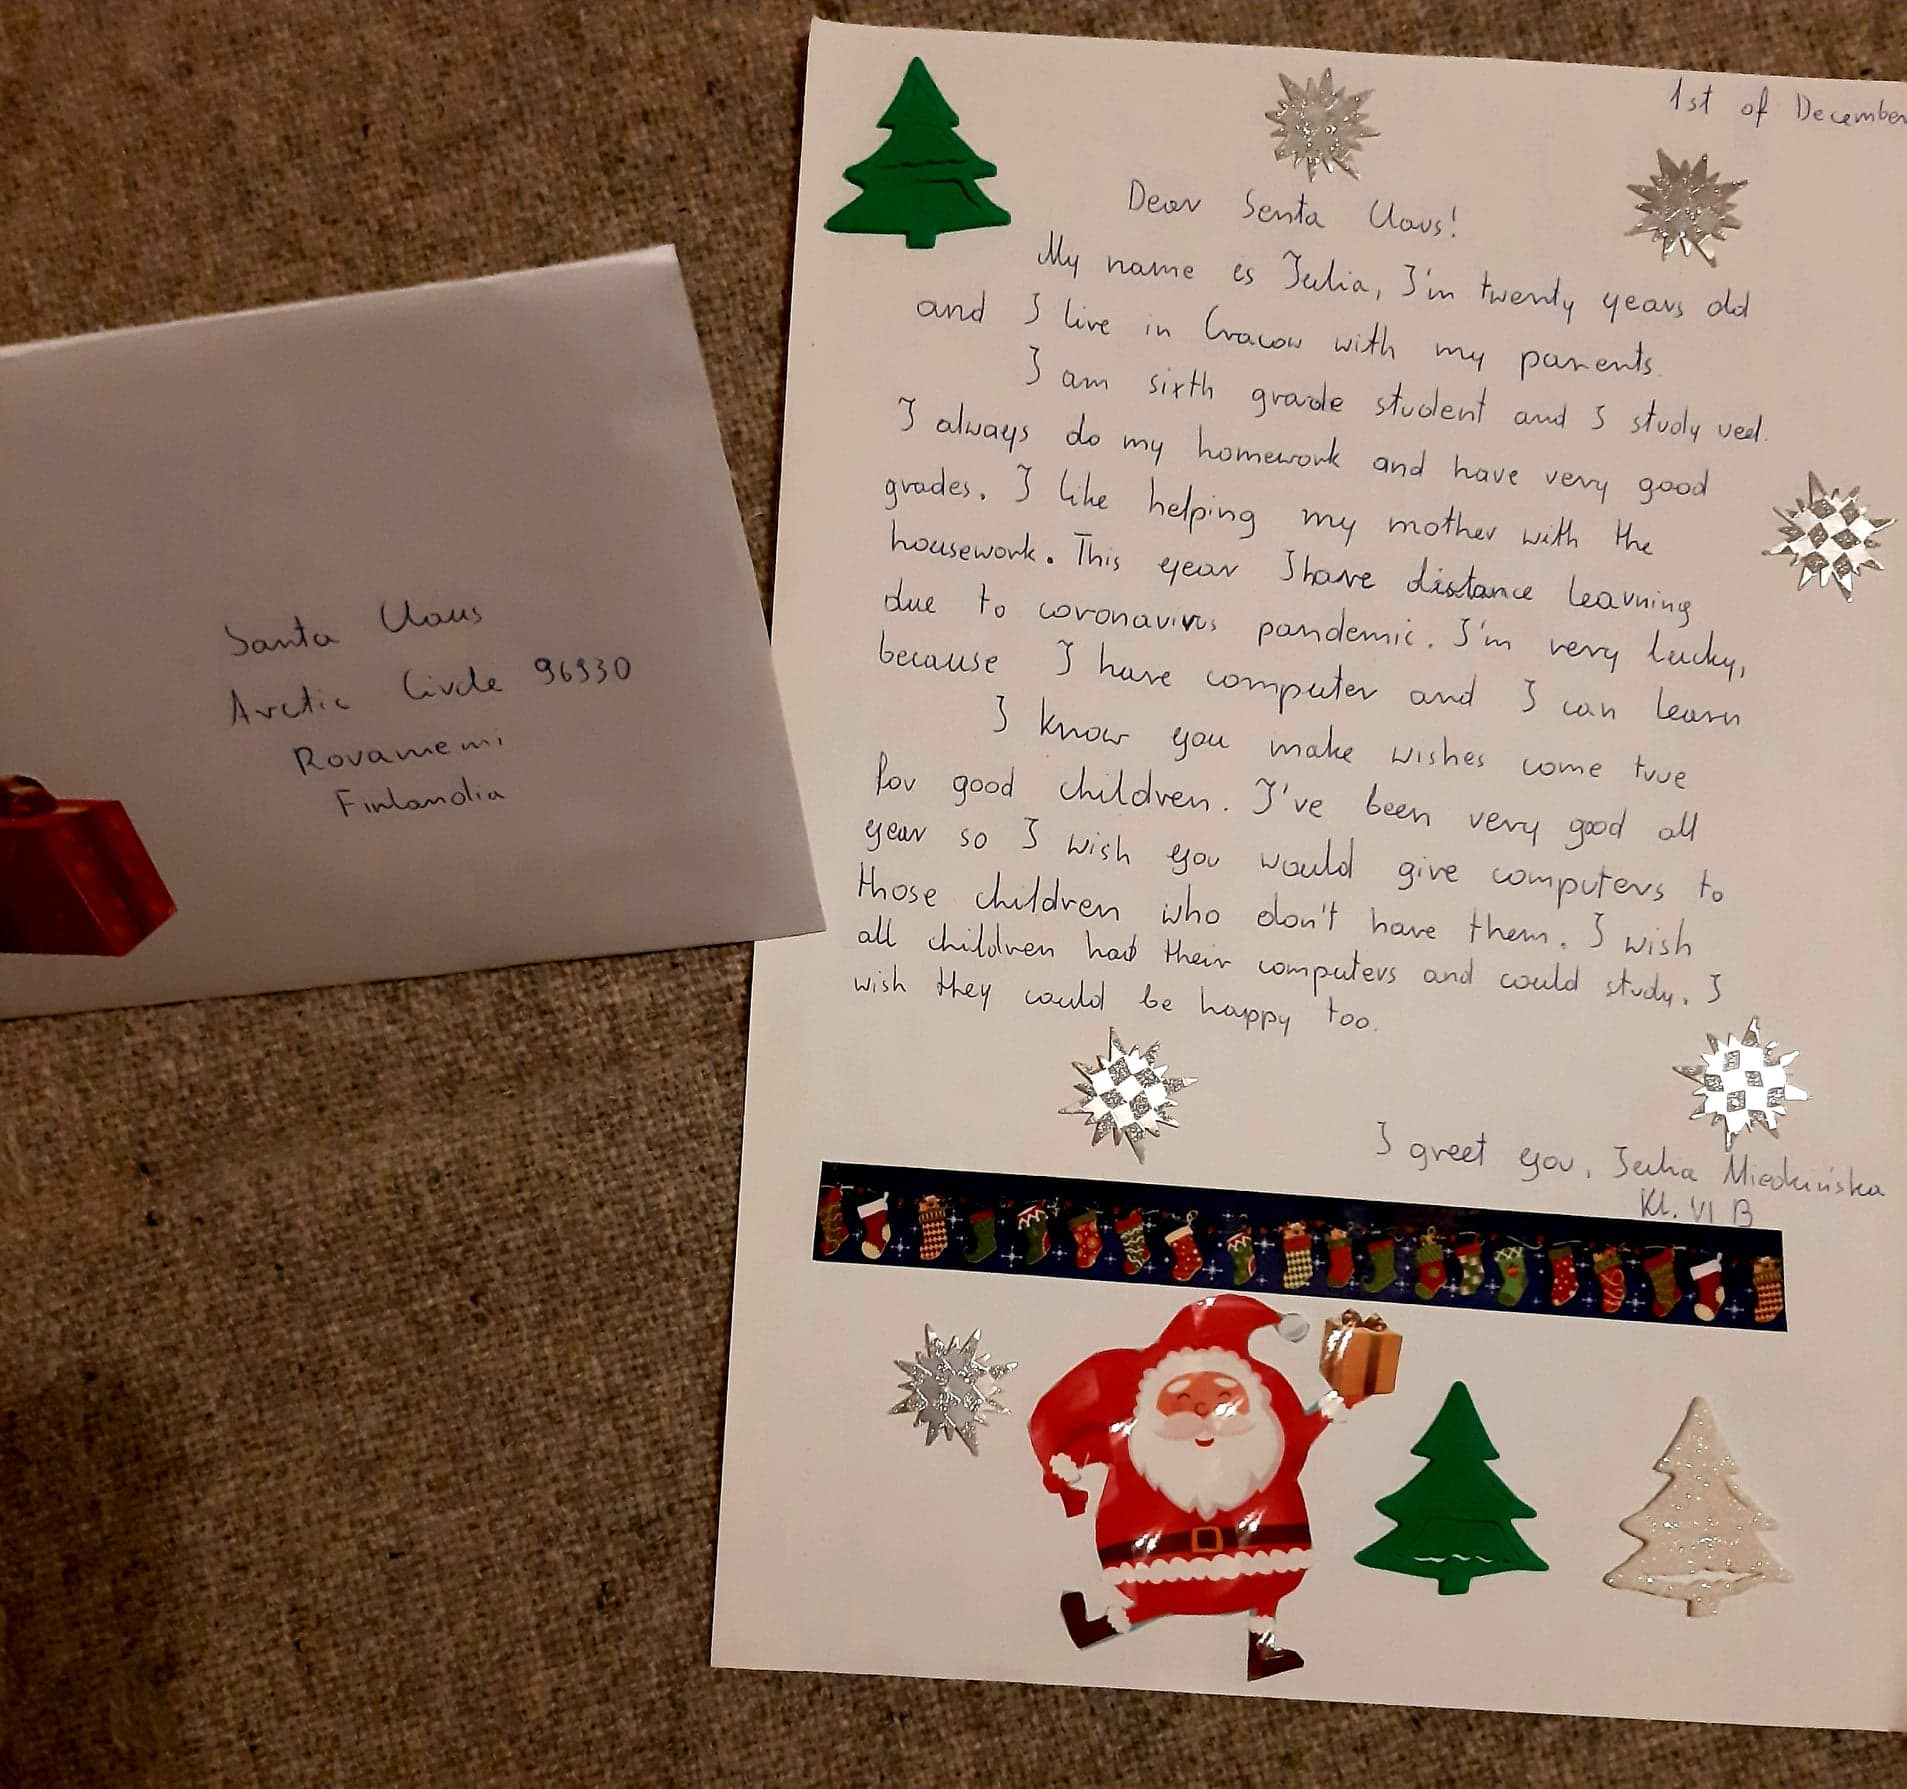 Santa Claus
Arctic Circle 96930
Rovamemi
Finlandia
1st of December
Dear Senta Claus!
My name is Julia, I'm twenty years old
and I live in Cracow with my parents.
I am sixth grade student and I study veel.
I always do my homework and have very good
grades. I like helping my mother with the
housework. This year I have distance learning
due to coronavirus pandemic. I'm very lucky,
because I have computer and I can learn
I know you make wishes come true
for good children. I've been very good all
year so I wish you would give computers to
those children who don't have them. I wish
all children had their computers and could study. I
wish they could be happy too.
I greet you, Julia
Kl. VI B